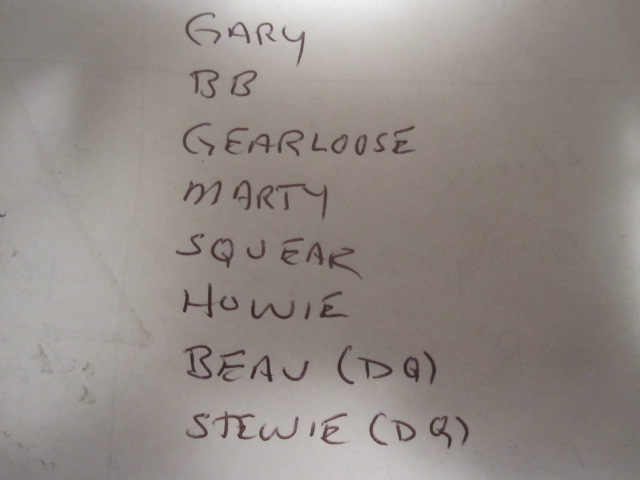 GARY
BB
GEARLOOSE
MARTY
SQUEAR
HOWIE
BEAU (DQ)
STEWIE (DQ)